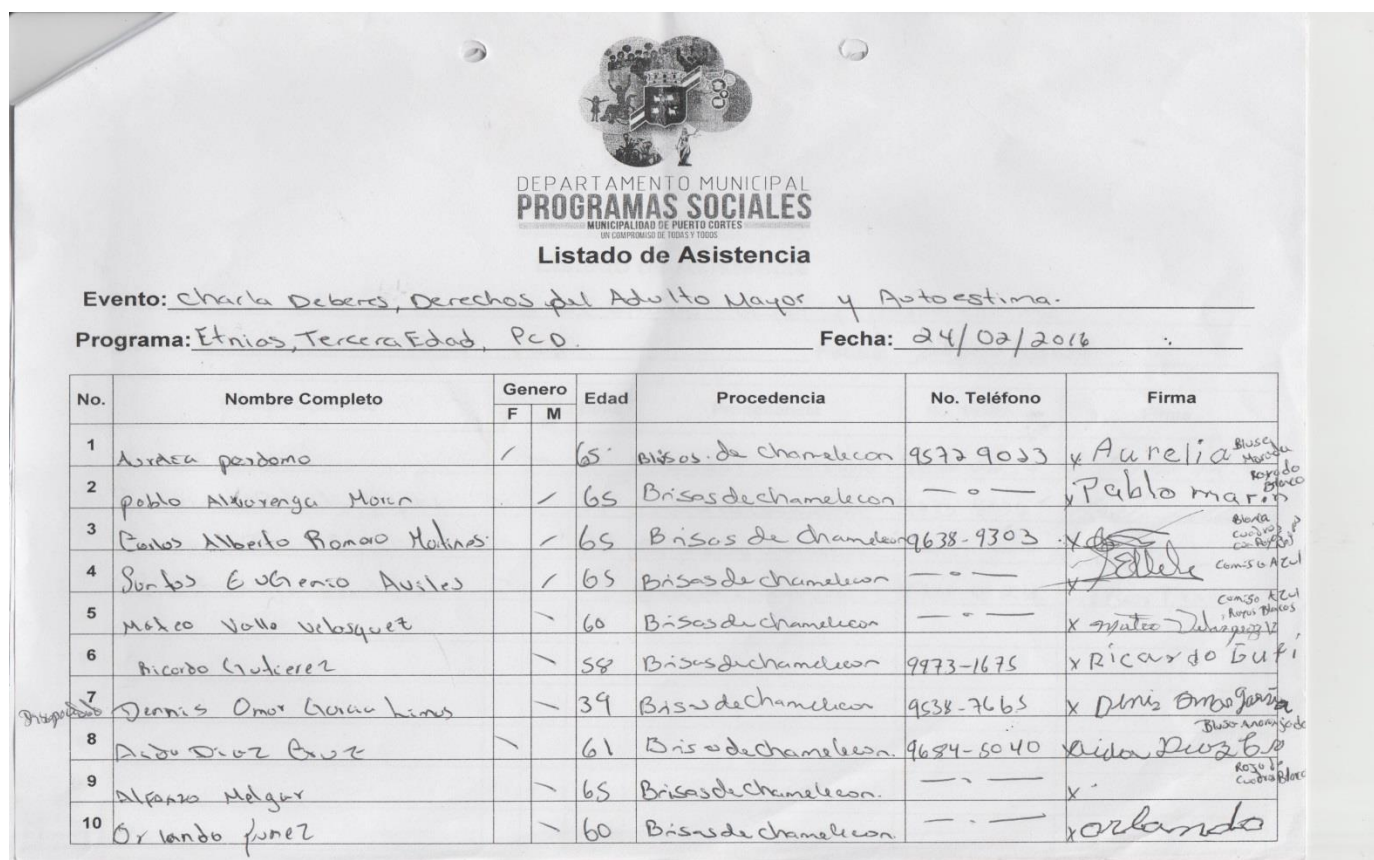 DEPARTAMENTO MUNICIPAL
PROGRAMAS SOCIALES
MUNICIPALIDAD DE PUERTO CORTES
UN COMPROMISO DE TODAS Y TODOS
Listado de Asistencia
Evento: Charla Deberes, Derechos del Adulto Mayor y Autoestima.
Programa: Etnias, Tercera Edad, PcD. Fecha: 24/02/2016
No. Nombre Completo Genero Edad Procedencia No. Teléfono Firma
F M
1 perdomo 65 de chamelecon 9572 9023 x Aurelia Blusa
2 pablo 65 Brisas de chamelecon — o — x Pablo marin
3 Carlos Alberto Romero 65 Brisas de Chamelecon 9638-9303 x
4 EuGenio Aviles 65 Brisas de chamelecon — o — x Camisa Azul
5 Mateo Valle Velasquez 60 Brisas de chamelecon — o — x Mateo Camisa Azul, Rayas Blancas
6 Ricardo Gutierez 58 Brisas de chamelecon 9973-1675 x Ricardo Guti
7 Dennis Omar Garcia 39 Brisas de chamelecon 9538-7665 x Denis Omar Garcia
8 Diaz Cruz 61 Brisas de chamelecon. 9684-5040 x aida Diaz Blusa Anaranjada
9 Alfonzo Melgar 65 Brisas de chamelecon. — . — x
10 Orlando funez 60 Brisas de chamelecon. — . — x orlando